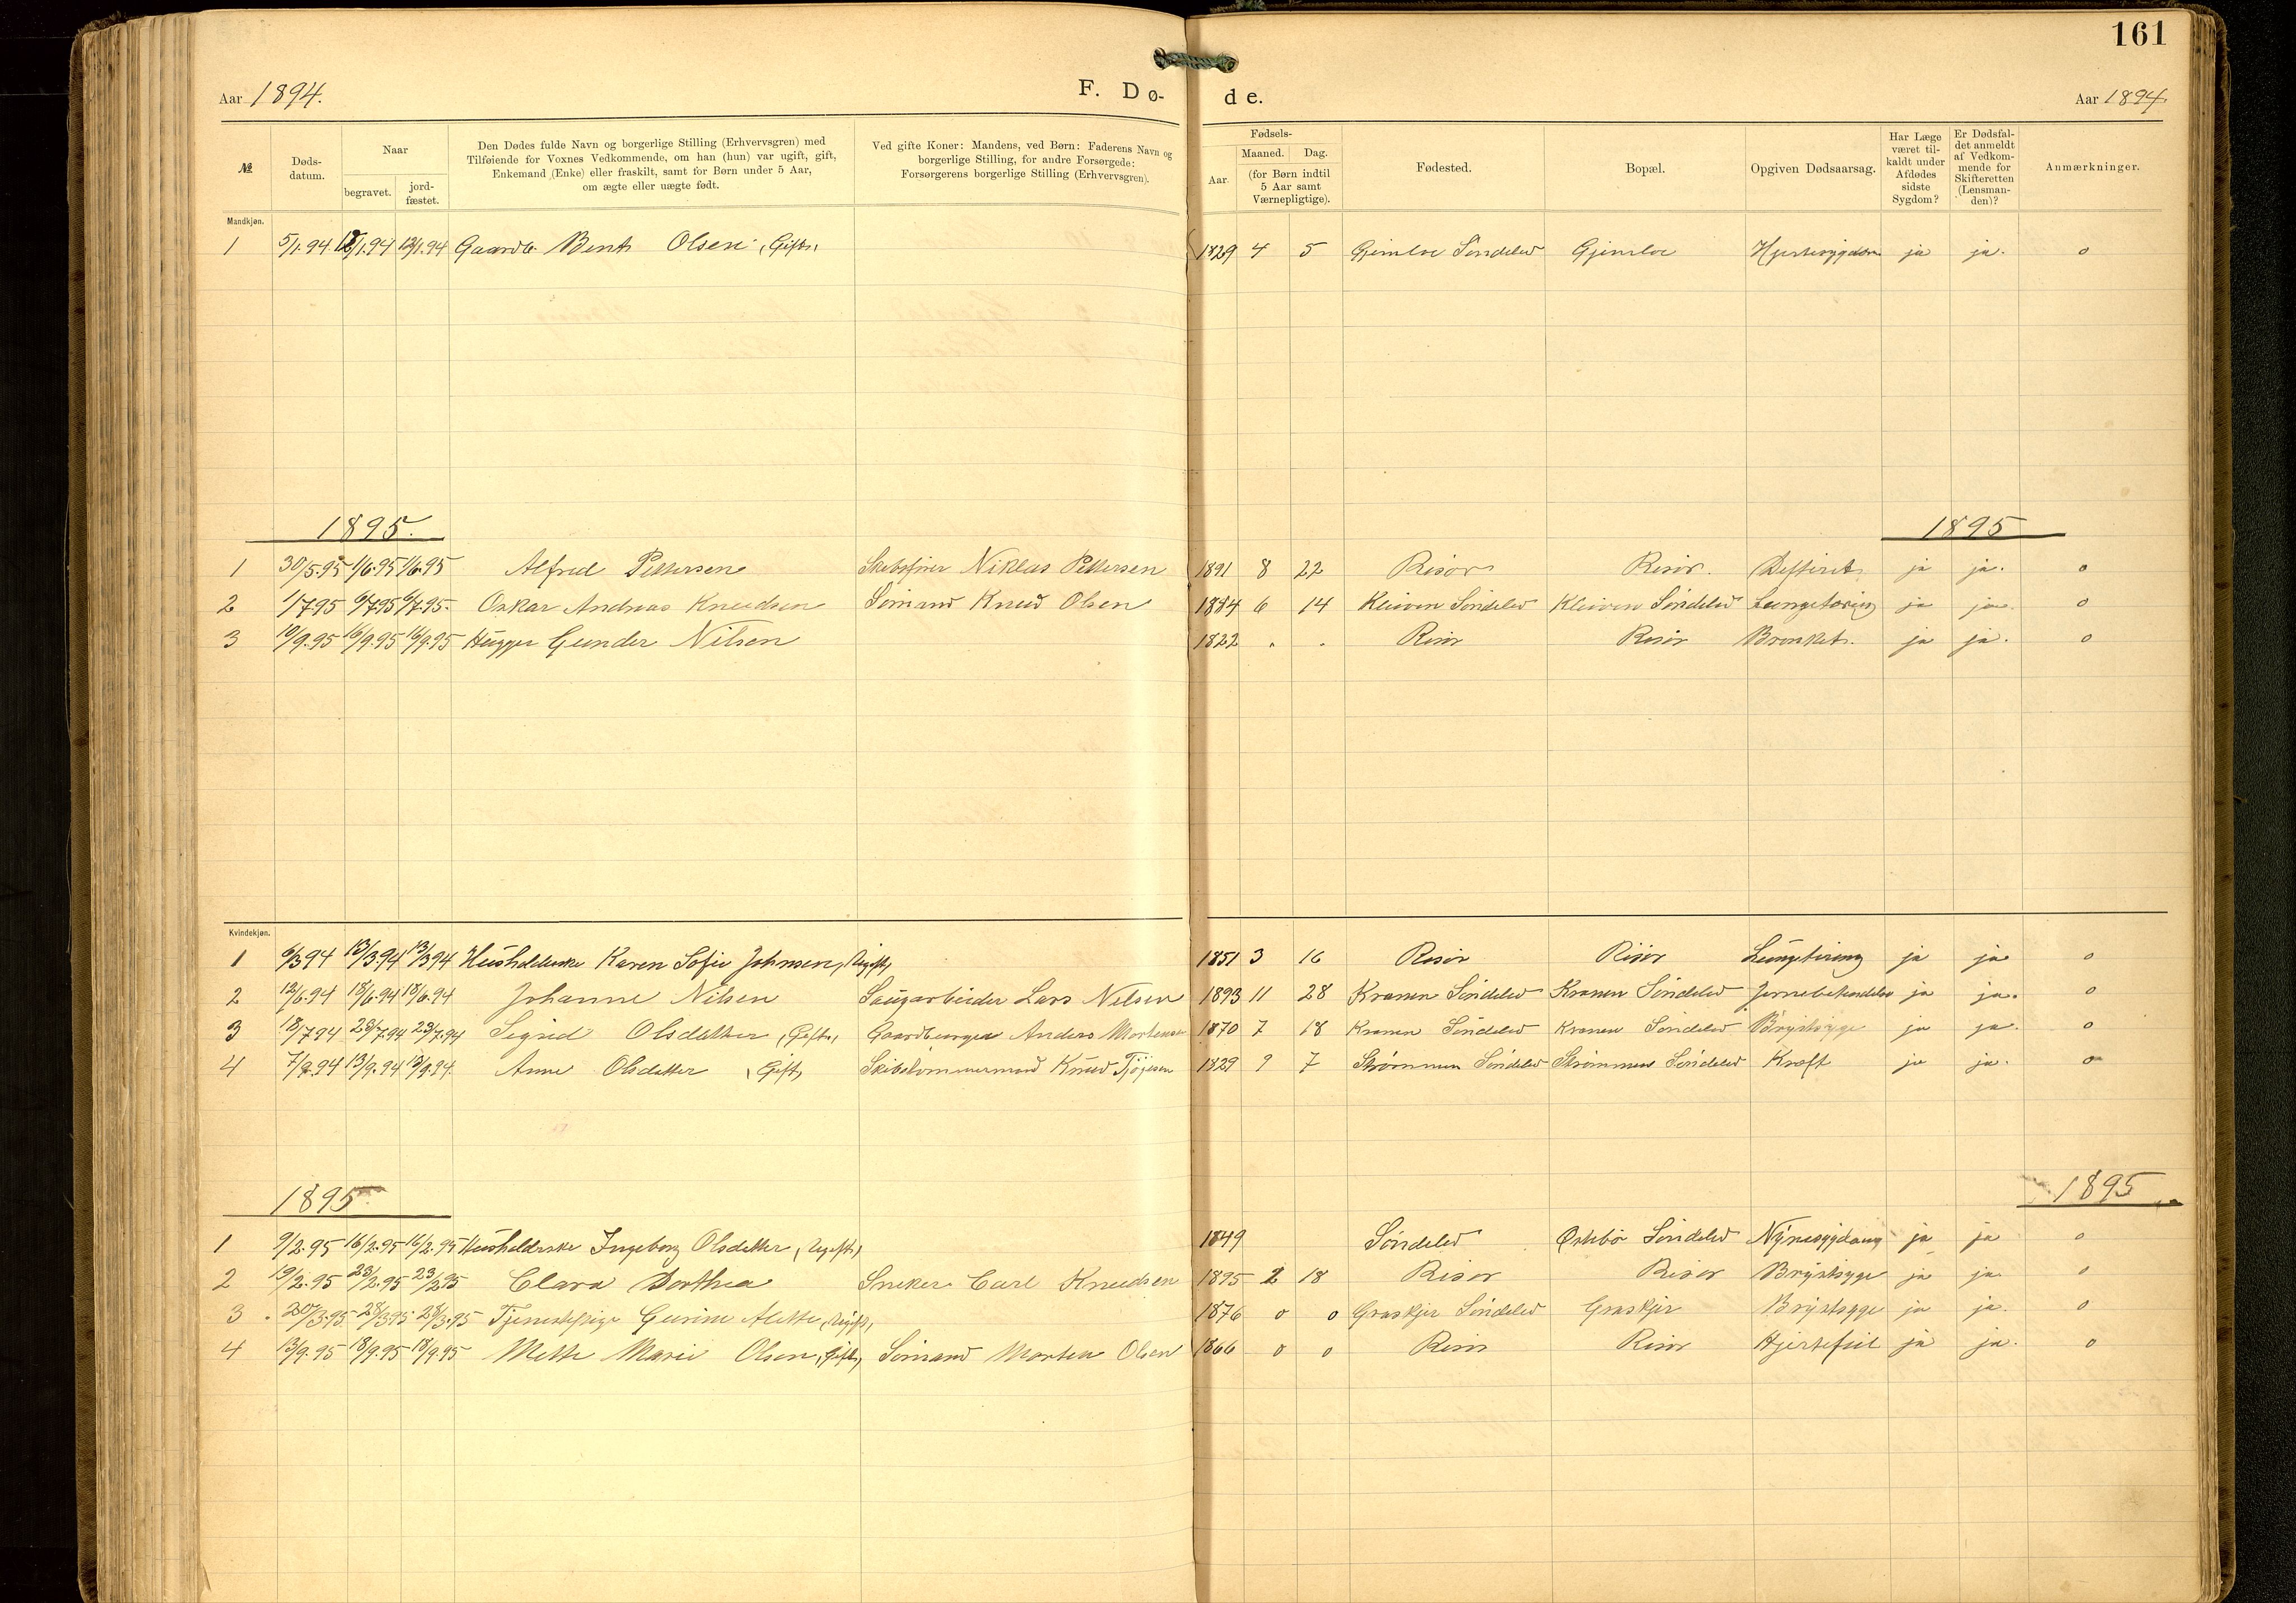 161
Aar 1894. F. Dø- de. Aar 1894.
№ Døds-datum. Naar begravet. jord-fæstet. Den Dødes fulde Navn og borgerlige Stilling (Erhvervsgren) med Tilføiende for Voxnes Vedkommende, om han (hun) var ugift, gift, Enkemand (Enke) eller fraskilt, samt for Børn under 5 Aar, om ægte eller uægte født. Ved gifte Koner: Mandens, ved Børn: Faderens Navn og borgerlige Stilling, for andre Forsørgede: Forsørgerens borgerlige Stilling (Erhvervsgren). Fødsels- Aar. Maaned. Dag. (for Børn indtil 5 Aar samt Værnepligtige). Fødested. Bopæl. Opgiven Dødsaarsag. Har Læge været til-kaldt under Afdødes sidste Sygdom? Er Dødsfal-det anmeldt af Vedkom-mende for Skifteretten (Lensman-den)? Anmærkninger.
Mandkjøn.
1 5/1.94 12/1.94 12/1.94 Gaardb. Bent Olsen (Gift) 1829 4 5 Gjimloe Söndeled Gjimloe Hjertesygdom ja ja. o
1895. 1895
1 30/5.95 1/6.95 1/6.95 Alfred Pettersen Skibsfører Niklas Pettersen 1891 8 22 Risör Risör. Difterit. ja ja. o
2 1/7.95 6/7.95 6/7.95. Oskar Andreas Knudsen Sömand Knud Olsen 1884 6 14 Kleiven Söndeled Kleiven Söndeled Lungetæring ja ja. o
3 10/9.95 16/9.95 16/9.95 Hugger Gunder Nilsen 1822 . . Risör Risör Bronkit. ja ja. o
Kvindekjøn.
1 6/3 94 13/3.94 13/3 94 Husholderske Karen Sofie Johnsen, (Ugift) 1851 3 16 Risör Risör Lungetæring ja ja o
2 12/6.94 18/6.94 18/6.94 Johanne Nilsen Saugarbeider Lars Nilsen 1893 11 28 Kranen Söndeled Kranen Söndeled ja ja. o
3 18/7 94 23/7.94 23/7.94 Sigrid Olsdatter (Gift) Gaardbruger Anders Mortensen 1870 7 18 Kranen Söndeled Kranen Söndeled Brystsyge ja ja. o
4 7/9.94 13/9.94 13/9.94. Anne Olsdatter (Gift) Skibstömmermand Knud 1829 9 7 Strømmen Söndeled Strømmen Söndeled Kræft ja ja. o
1895. 1895
1 9/2.95 16/2.95 16/2.95 Husholderske Ingeborg Olsdatter, (Ugift) 1849 Söndeled Östebö Söndeled Nyresygdom ja ja o
2 19/2.95 23/2.95 23/2.95 Clara Dorthea Sneker Carl Knudsen 1895 2 18 Risör Risör Brystsyge ja ja o
3 20/3.95 28/3.95 28/3.95 Tjenestepige Gurine Alette, (Ugift) 1876 o o Graskjer Söndeled Graskjer Brystsyge ja ja. o
4 13/9.95 18/9.95 18/9.95 Mette Marie Olsen, (Gift) Sömand Morten Olsen 1866 o o Risör Risör Hjertefeil ja ja. o